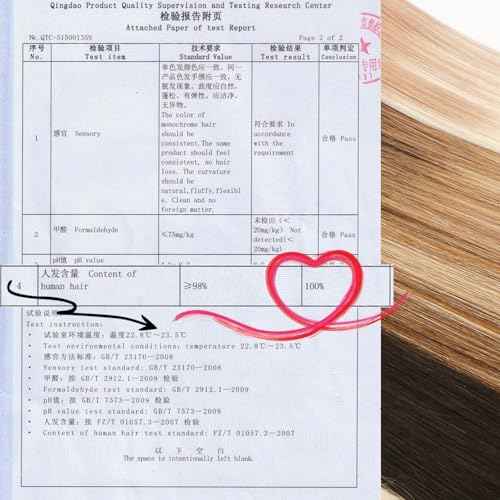 Qingdao Product Quality Supervision and Testing Research Center
检验报告附页
Attached Paper of test Report
Page 2 of 2
序号 检验项目 技术要求 检验结果 单项判定
No. Test item Standard Value Test result Conclusion
单色发颜色应一致，同一
产品色发手感应一致，无
脱发现象。波度应自然，
蓬松、有弹性。应洁净，
无异物。
The color of
monochrome hair
should be
consistent.The same
product should feel
consistent, no hair
loss. The curvature
should be
natural,fluffy,flexibl
e. Clean and no
foreign matter.
1 感官 Sensory
符合要求 In
accordance
with the
requirement
合格 Pass
2 甲醛 Formaldehyde ≤75mg/kg
未检出（<
20mg/kg） Not
detected(<
20mg/kg)
合格 Pass
pH值 pH value
4 人发含量 Content of
human hair ≥98% 100%
试验说明
Test instruction:
• 试验室环境温度：温度22.8℃~23.5℃
• Test environmental conditions: temperature 22.8℃~23.5℃
• 感官方法标准：GB/T 23170-2008
• Sensory test standard: GB/T 23170-2008
• 甲醛：按 GB/T 2912.1-2009 检验
• Formaldehyde test standard: GB/T 2912.1-2009
• pH值：按 GB/T 7573-2009 检验
• pH value test standard: GB/T 7573-2009
• 人发含量：按 FZ/T 01057.3-2007 检验
• Content of human hair test standard: FZ/T 01057.3-2007
以 下 空 白
The space is intentionally left blank.